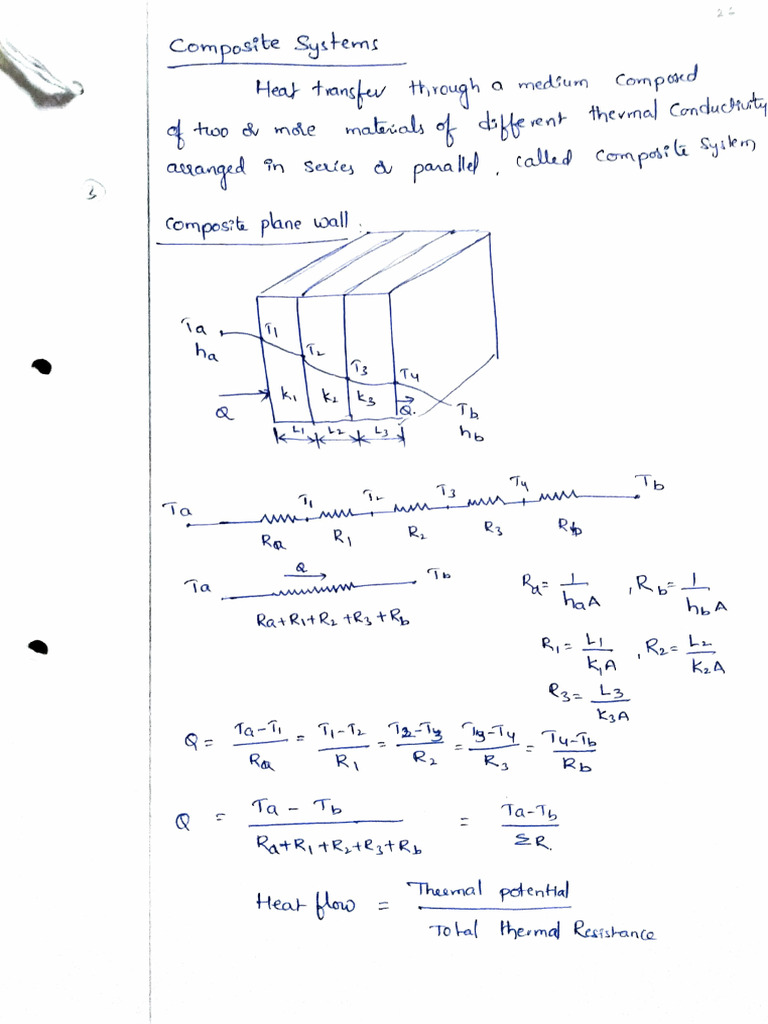 Composite Systems
Heat transfer through a medium composed
of two or more materials of different thermal conductivity
arranged in series or parallel, called composite system
3
Composite plane wall:
Ta
ha
T1
T2
T3
T4
Q
K1 K2 K3
Q.
Tb
hb
L1 L2 L3
Ta T1 T2 T3 T4 Tb
Ra R1 R2 R3 Rb
Ta Q Tb
Ra+R1+R2+R3+Rb
Ra = 1/haA , Rb = 1/hbA
R1 = L1/K1A , R2 = L2/K2A
R3 = L3/K3A
Q = Ta-T1/Ra = T1-T2/R1 = T2-T3/R2 = T3-T4/R3 = T4-Tb/Rb
Q = Ta - Tb/Ra+R1+R2+R3+Rb = Ta-Tb/ΣR.
Heat flow = Thermal potential/Total thermal Resistance